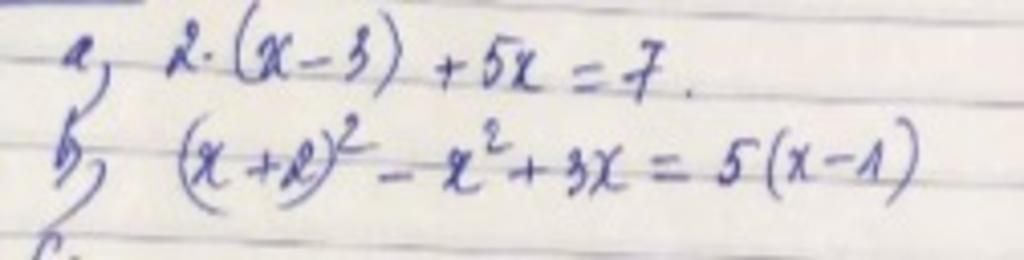 a, 2.(x-3) + 5x = 7.
b, (x+2)² - x² + 3x = 5(x-1)